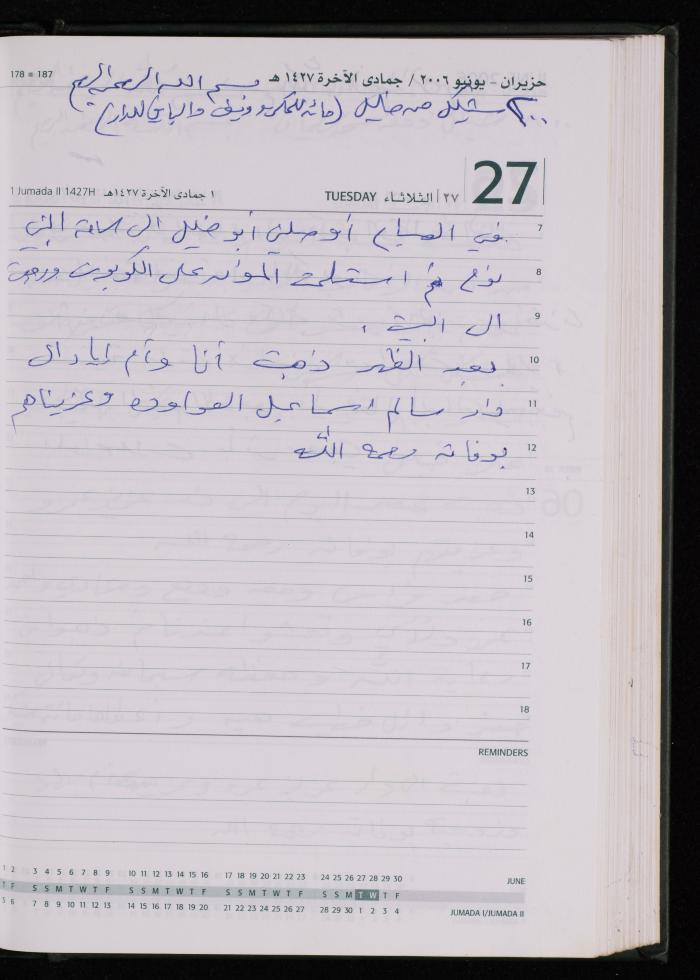 178 ■ 187
حزيران - يونيو ٢٠٠٦ / جمادى الآخرة ١٤٢٧ هـ
بسم الله الرحمن الرحيم
٢٠٠ شيكل من خليل (مائة للكمبيوتر والباقي للدار)
1 Jumada II 1427H ١ جمادى الآخرة ١٤٢٧هـ
TUESDAY ٢٧ | الثلاثاء
27
7 في الصباح أوصلني أبو خليل الى ساحة التي
8 ثم استلمت المؤن على الكوبون ورجعت
9 الى البيت .
10 بعد الظهر ذهبت أنا وأم إياد الى
11 دار سالم اسماعيل العواوده وعزيناهم
12 بوفاته رحمه الله
13
14
15
16
17
18
REMINDERS
1 2 3 4 5 6 7 8 9 10 11 12 13 14 15 16 17 18 19 20 21 22 23 24 25 26 27 28 29 30 JUNE
T F S S M T W T F S S M T W T F S S M T W T F S S M T W T F
5 6 7 8 9 10 11 12 13 14 15 16 17 18 19 20 21 22 23 24 25 26 27 28 29 30 1 2 3 4 JUMADA I/JUMADA II